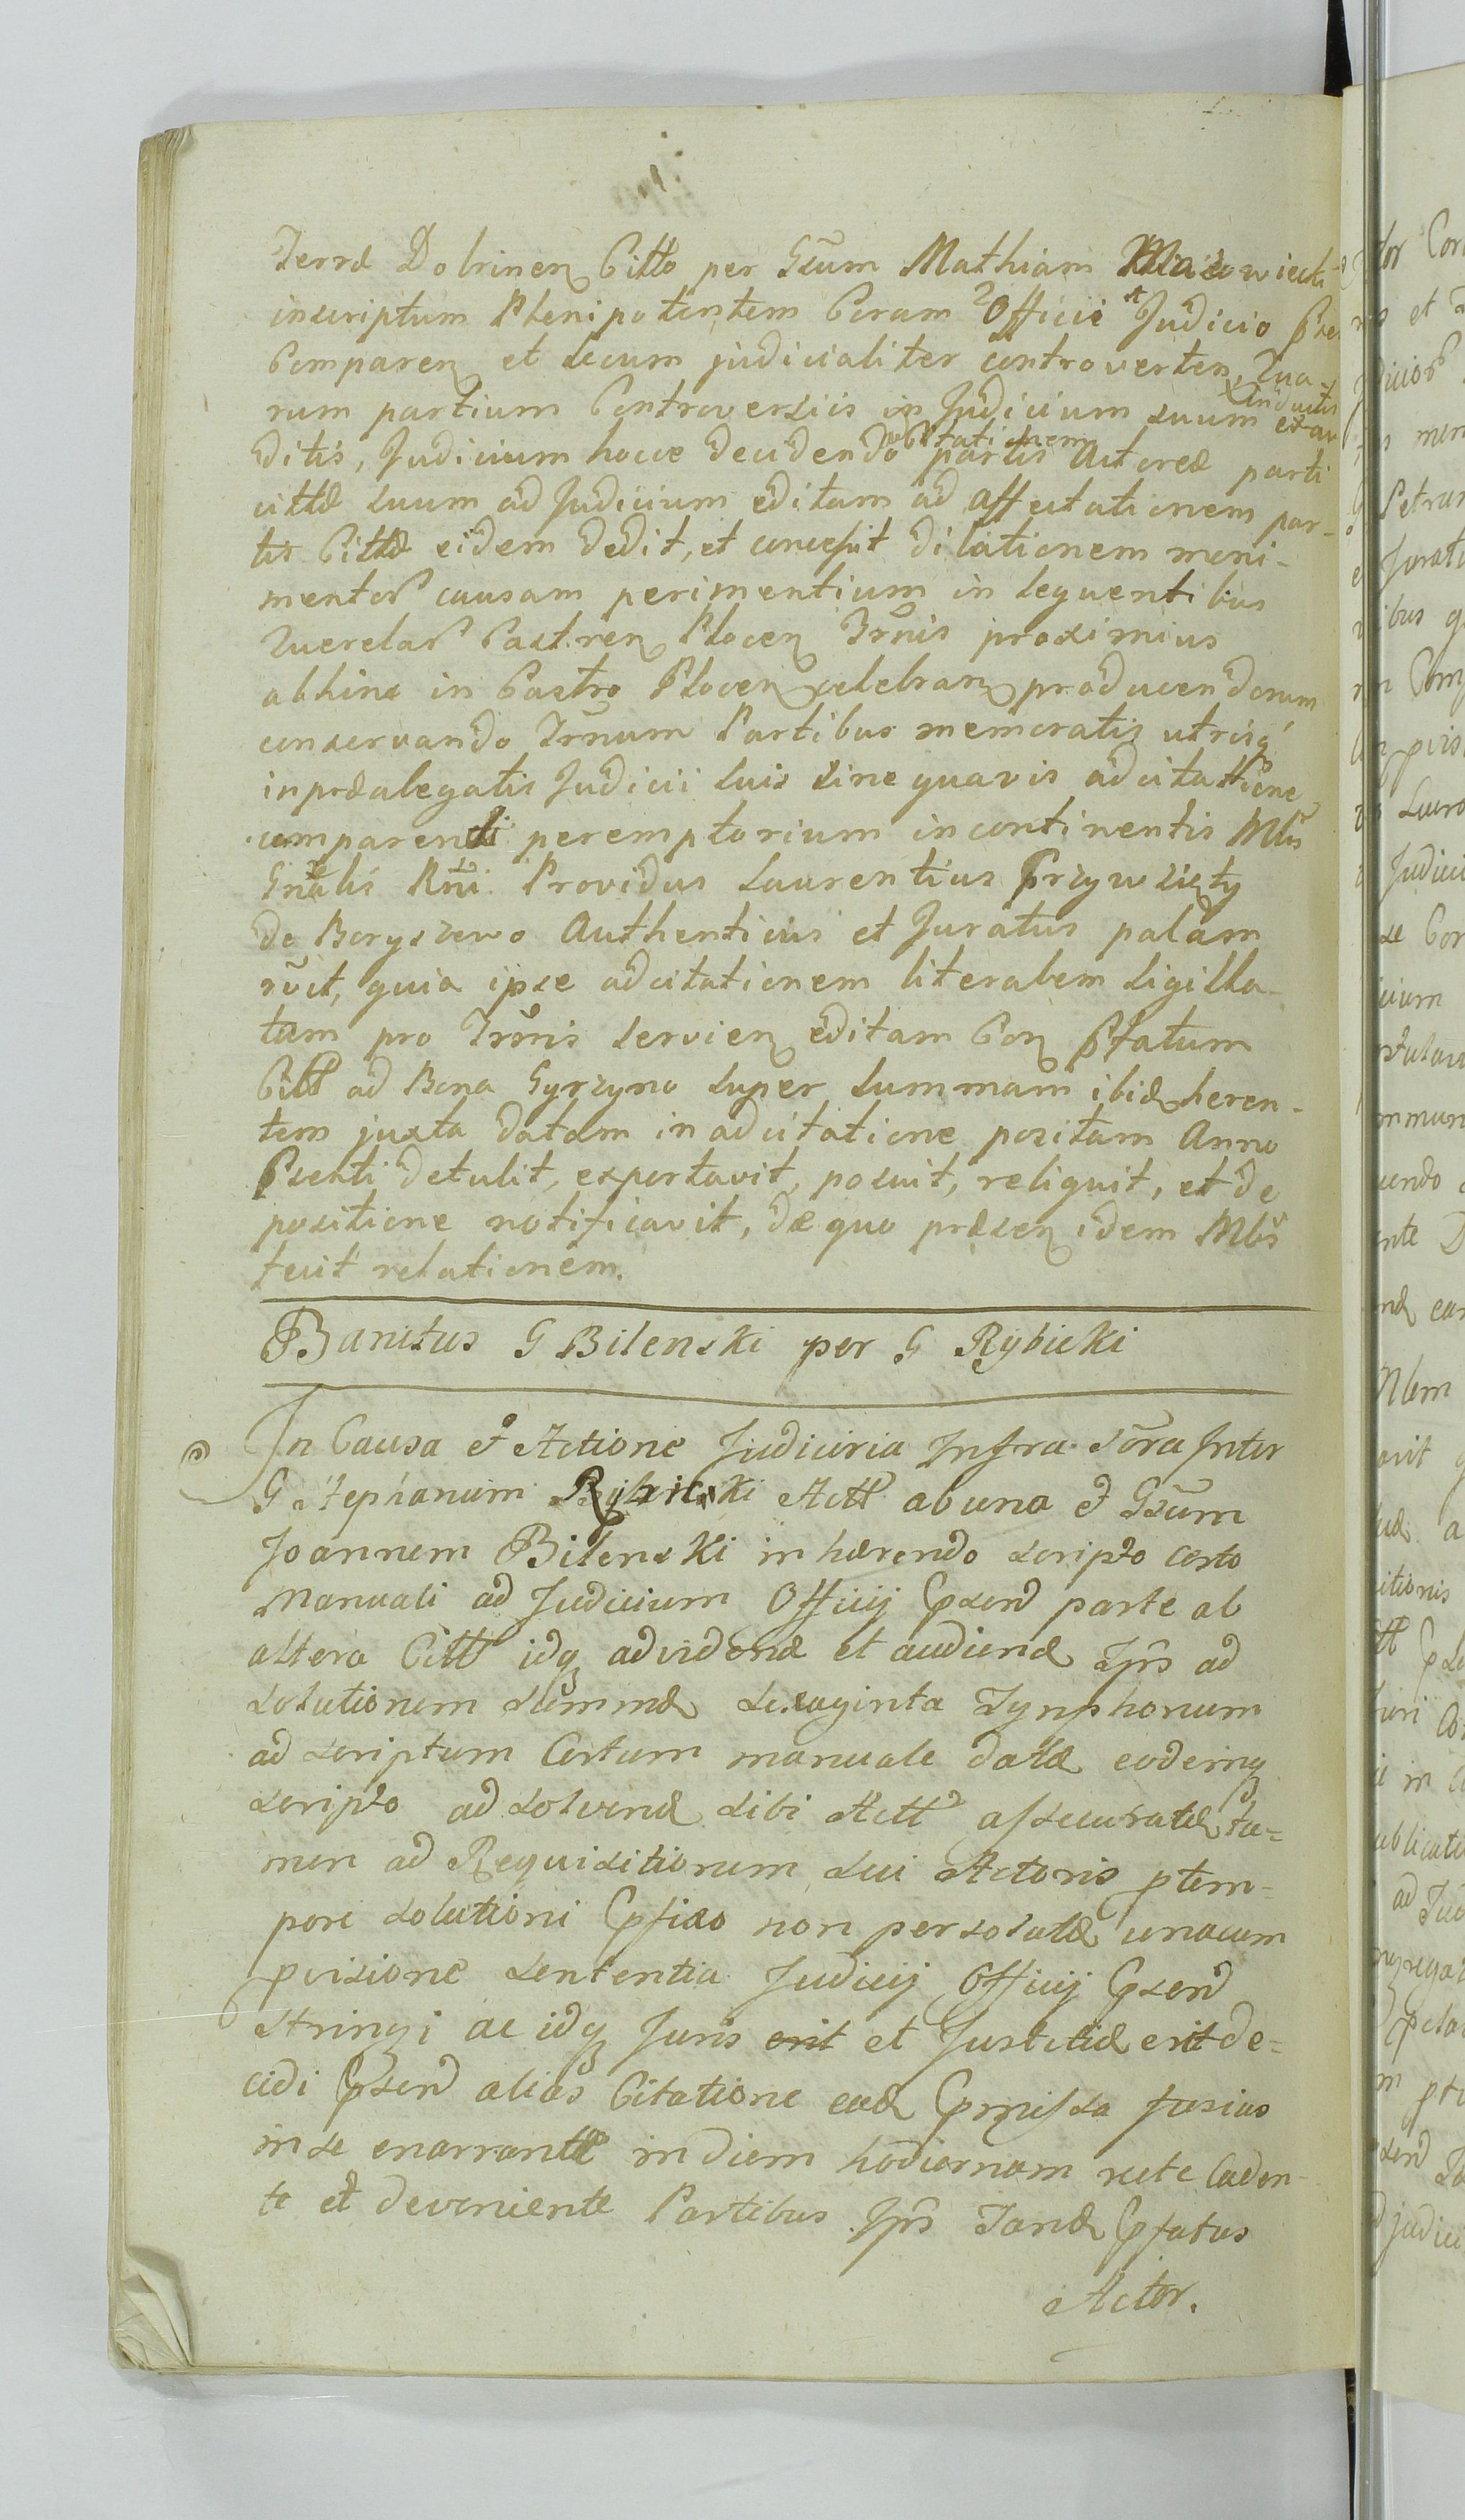 Terræ Dobrinen Citto per Gsum Mathiam Mazowiecki
inscriptum Plenipotentem Coram Officii et Judicio Pse
Comparen et secum judicialiter controverten, Qua-
rum partium Controversiis in Judicium suum inductis et au
ditis, Judicium hocce decidendo citationem partis Actoreæ parti
cittæ suum ad Judicium editam ad affectationem par-
tis Cittæ eidem dedit, et concessit dilationem muni-
mentor causam perimentium in sequentibus
Querelar Castren Plocen Trnis proximius
abhinc in Castro Plocen celebran producendorum
conservando Trnum Partibus memoratis utrisq
in præalegatis Judicii suis sine quavis adcitatione
comparendi peremptorium incontinentis Mlis
Gnalis Rni Providus Laurentius Przywsięty
de Boryszewo Authenticus et Juratus palam
rĕcit, quia ipse adcitationem literalem sigilla-
tam pro Trnis servien editam Con Pfatum
Citt ad Bona Gyrzyno super summam ibid heren-
tem juxta datam in adcitatione positam Anno
Psenti detulit, exportavit, posuit, reliquit, et de
positione notificavit, de quo præsen idem Mlis
fecit relationem.
Banitus G Bilenski per G Rybicki
In Causa et Actione Judiciaria Infra Scra Inter
G Stephanum Rybicki Actt ab una et Gsum
Joannem Bilenski in hærendo scripto certo
Manuali ad Judicium Officij Psend parte ab
altera Citt idq ad videnð et audienð Ips ad
solutionem summæ sexaginta Tynphonum
ad scriptum Certum manuale datæ eodemq
scripto ad solvenð sibi Actt assecuratæ ta=
men ad Requisitionem sui Actoris ptem=
pore solutioni Pfixo non persolutæ unacum
pvisione sententia Judicij Officij Psend
stringi ac idq Juris erit et Justitiæ erit de=
cidi Psend alias Citatione ead Pmissa fusius
in se enarrante in diem hodiernam recte Caden-
te et deveniente Partibus Ips Tand Pfatus
Actor.